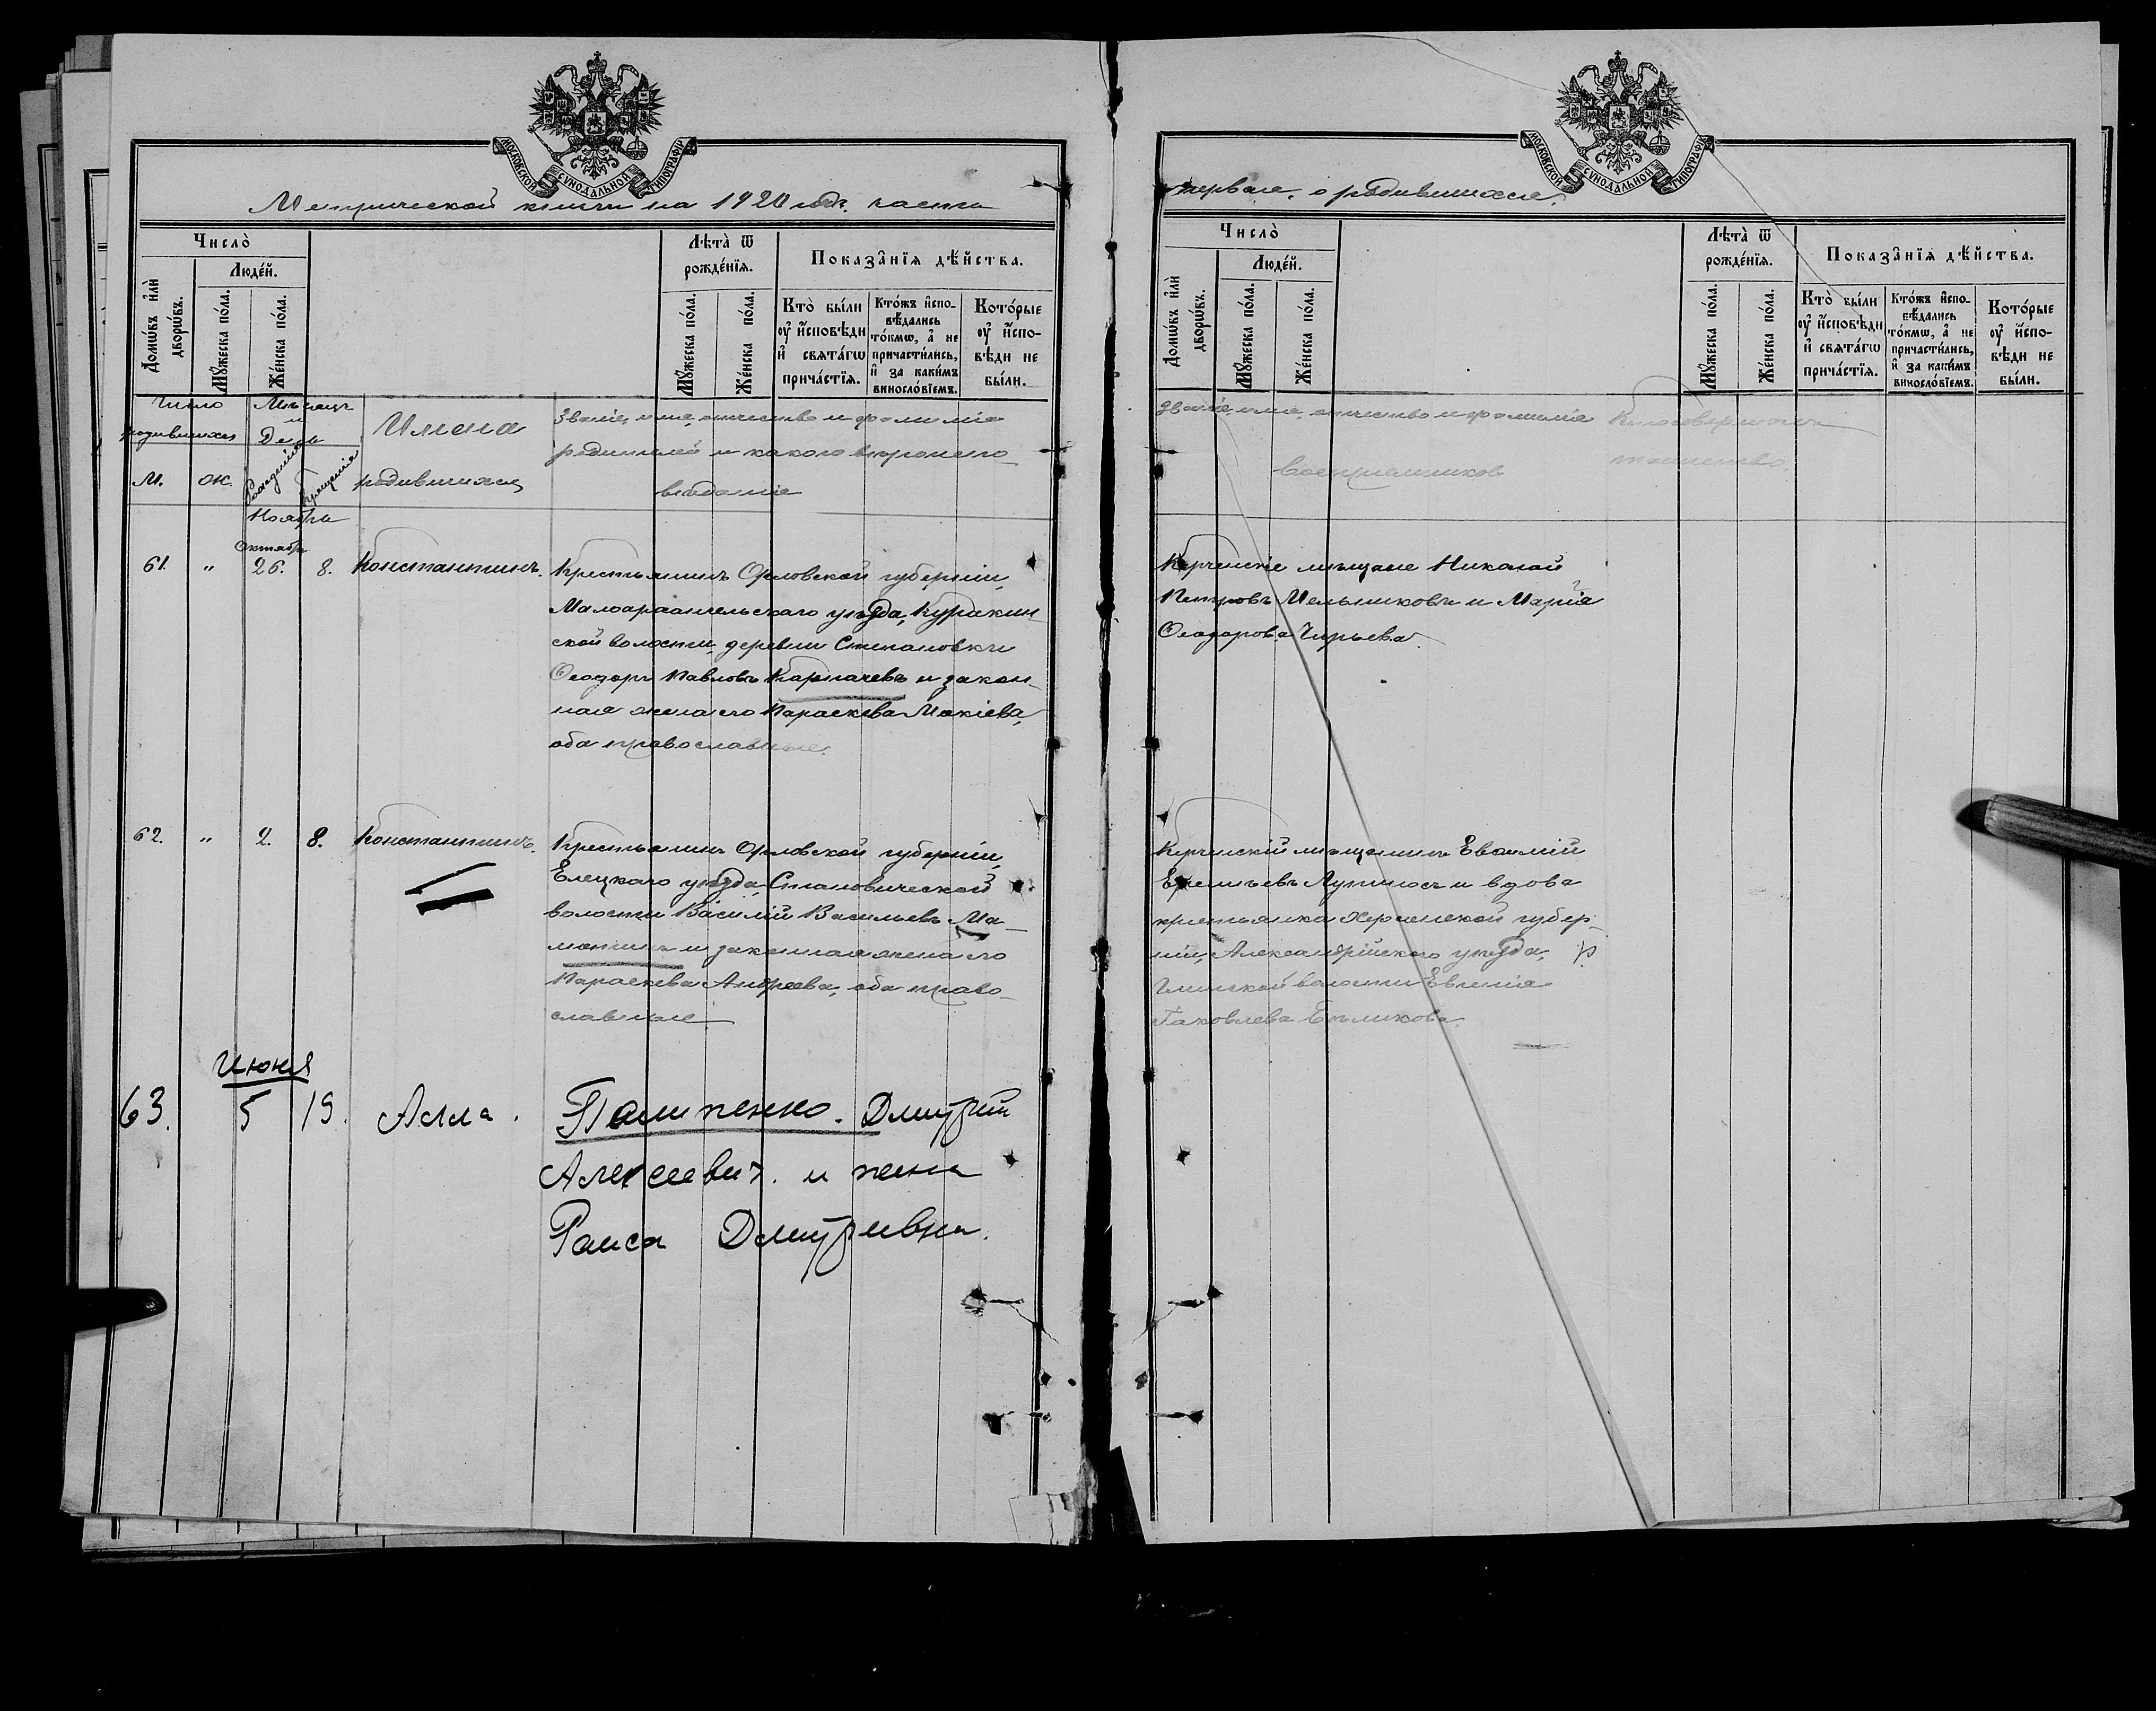 МОСКОВСКОЙ СѴНОДАЛЬНОЙ ТИПОГРАФІИ
Метрической книги на 1920 годъ. части
Число̀
Домѡ́въ и҆лѝ дворѡ́въ.
Люде́й.
Мꙋ́жеска по́ла.
Же́нска по́ла.
Лѣта̀ ѿ рожде́нїя.
Мꙋ́жеска по́ла.
Же́нска по́ла.
Показа̂нїя дѣ́йства.
Кто̀ бы́ли
оу҆ и҆сповѣ́ди
и҆ свѧта́гѡ
прича́стїѧ.
Кто́жъ и҆спо-
вѣ́дались
то́кмѡ, а҆ не
причасти́лись,
и҆ за каки́мъ
винослові́емъ.
Кото́рые
оу҆ и҆спо-
вѣ́ди не
бы́ли.
Число родившихся
М. Ж.
Мѣсяцъ и День
Рожденія
Крещенія
Имена
родившихся
Званіе, имя, отчество и фамилія
родителей и какого вѣроиспо
вѣданія
Ноября
Октября
61. " 26. 8. Константинъ.
Крестьянинъ Орловской губерніи,
Малоархангельскаго уѣзда, Куракин-
ской волости, деревни Степановки
Ѳеодоръ Павловъ Карпачевъ и закон-
ная жена его Параскева Мокіева,
оба православные.
62. " 2. 8. Константинъ.
Крестьянинъ Орловской губерніи,
Елецкаго уѣзда, Становической
волости Василій Васильевъ Ма-
монтинъ и законная жена его
Параскева Андреева, оба право-
славные
Июня
63. 5 19. Алла.
Палипенко. Дмитрий
Алексеевич. и жена
Раиса Дмитривна.
МОСКОВСКОЙ СѴНОДАЛЬНОЙ ТИПОГРАФІИ
первая, о родившихся.
Число̀
Домѡ́въ и҆лѝ дворѡ́въ.
Люде́й.
Мꙋ́жеска по́ла.
Же́нска по́ла.
Лѣта̀ ѿ рожде́нїя.
Мꙋ́жеска по́ла.
Же́нска по́ла.
Показа̂нїя дѣ́йства.
Кто̀ бы́ли
оу҆ и҆сповѣ́ди
и҆ свѧта́гѡ
прича́стїѧ.
Кто́жъ и҆спо-
вѣ́дались
то́кмѡ, а҆ не
причасти́лись,
и҆ за каки́мъ
винослові́емъ.
Кото́рые
оу҆ и҆спо-
вѣ́ди не
бы́ли.
Званіе, имя, отчество и фамилія
воспріемниковъ
Кто совершалъ
таинство.
Керченскіе мѣщане Николай
Петровъ Мельниковъ и Марія
Ѳеодорова Чирьева.
Керченскій мѣщанинъ Евѳимій
и вдова
крестьянка Херсонской губер-
ніи, Александрійскаго уѣзда,
волости Евгенія
Яковлева Бѣликова.